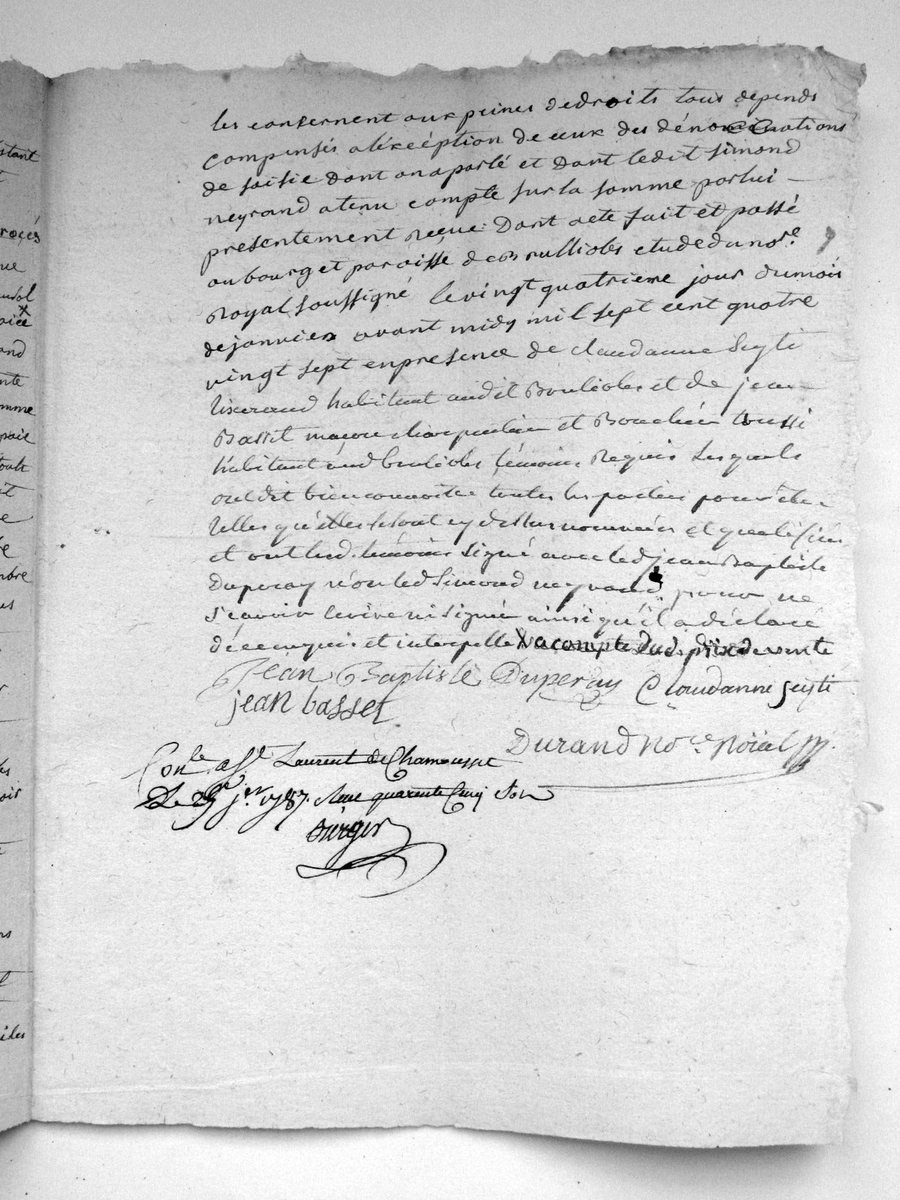 les concernent aux peines de droits tous depends
compensés a lexéception de ceux des dénonciations
de saisie dont on a parlé et dont ledit simond
neyrand a tenu compte sur la somme par lui
presentement reçue. Dont acte fait et passé
au bourg et paroisse de etude du no.re
Royal soussigné le vingt quatrieme jour du mois
de janvier avant midy mil sept cent quatre
vingt sept en presence de claudanne Seyti
tixerand habitant audit et de jean
Basset maçon charpentier et Boucher aussi
habitant aud témoins Requis Lesquels
ont dit bien connoitre toutes les parties pour être
telles qu'elles se sont cy dessus nommées et qualifiées
et ont lesd. témoins signé avec led jean Baptiste
Duperay non led Simond neyrand pour ne
sçavoir écrire ni signer ainsi qu'il a déclaré
de ce enquis et interpellé X acompte dud. prix de vente
Jean Baptiste Duperay Claudanne seyti
jean basset
Durand no.re Roïal
Con.le a S.t Laurent de Chamousset
Le 29 j.er 1787. quarente Cinq Sols